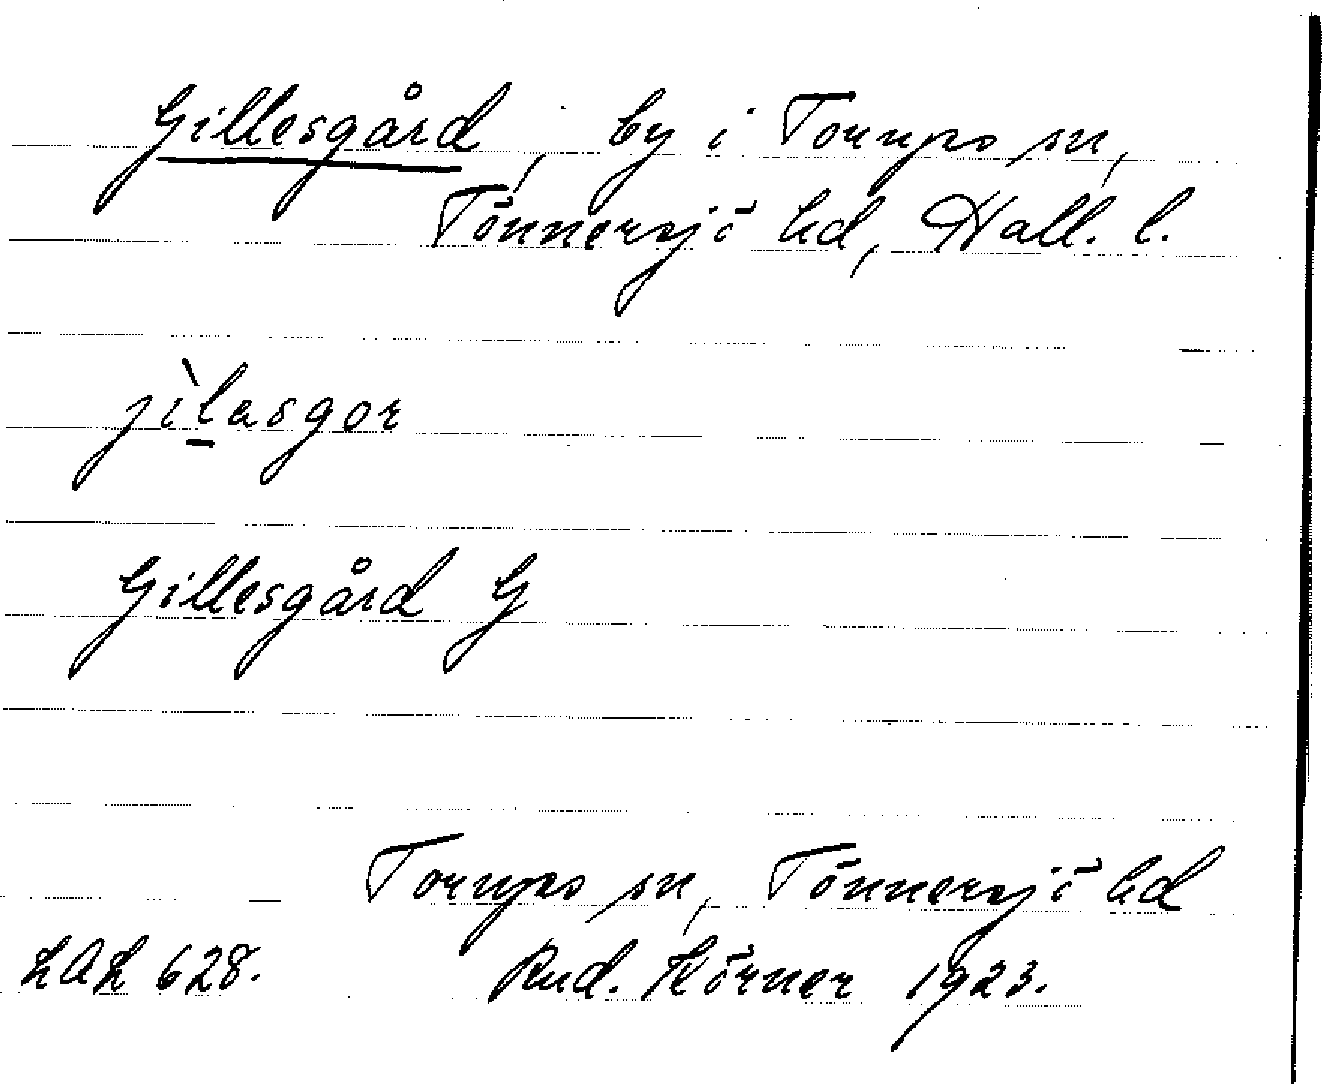 Gillesgård, by i Torups sn,
Tönnersjö hd, Hall. l.
jìlasgor
Gillesgård G
Torups sn, Tönnersjö hd
LAL 628. Rud. Körner 1923.